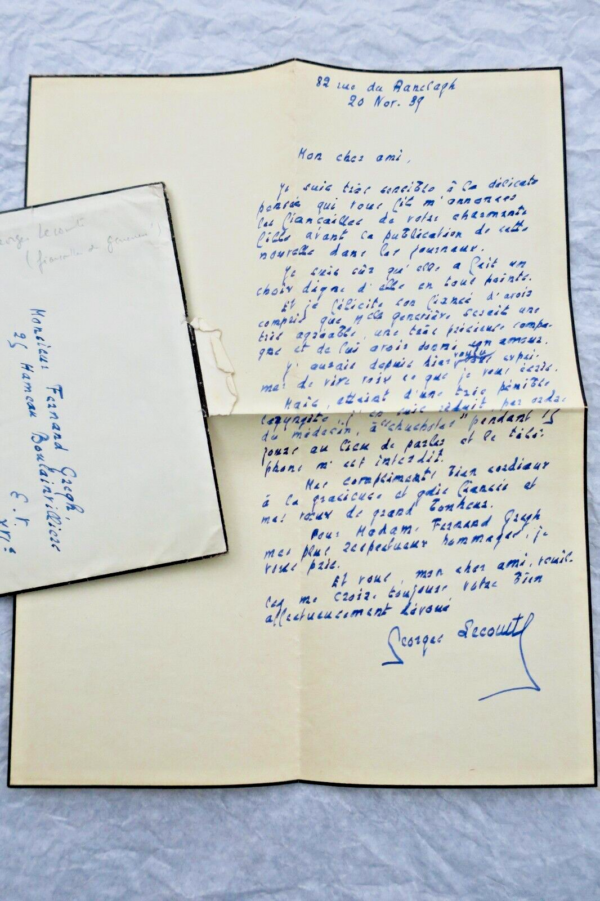 82 rue du Ranelagh
20 Nov. 39
Mon cher ami,
Je suis très sensible à la délicate
pensée qui vous fit m'annoncer
les fiançailles de votre charmante
fille avant la publication de cette
nouvelle dans les journaux.
Je suis sûr qu'elle a fait un
choix digne d'elle en tous points.
Et je félicite son fiancé d'avoir
compris que Melle Geneviève serait une
très agréable, une très précieuse compa-
gne et de lui avoir donné son amour.
J'aurais depuis hier voulu expri-
mer de vive voix ce que je vous écris.
Mais, atteint d'une très pénible
laryngite, j'en suis réduit, par ordre
du médecin, à "chuchoter" pendant 15
jours au lieu de parler et le télé-
phone m'est interdit.
Mes compliments bien cordiaux
à la gracieuse et gaie fiancée et
mes vœux de grand bonheur.
Pour Madame Fernand Gregh
mes plus respectueux hommages, je
vous prie.
Et vous, mon cher ami, veuil-
lez me croire toujours votre bien
affectueusement dévoué
Georges Lecomte
Georges Lecomte
Monsieur Fernand Gregh.
25 Hameau Boulainvilliers
E.V
XVIe